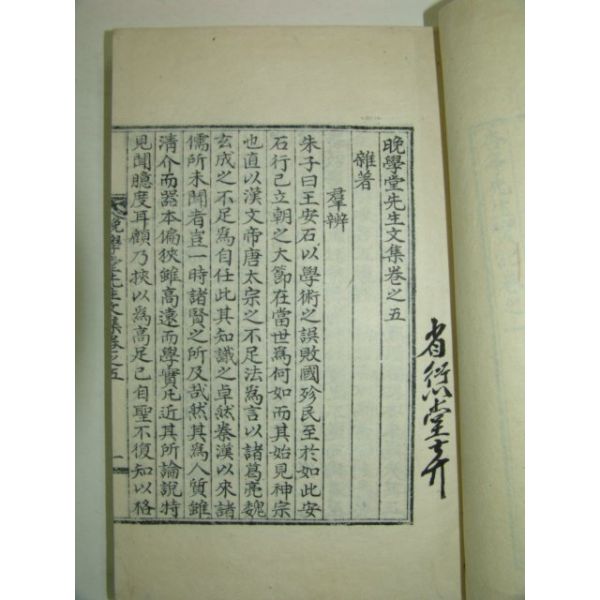 晩學堂先生文集卷之五
雜著
羣辨
朱子曰王安石以學術之誤敗國殄民至於如此安
石行己立朝之大節在當世爲何如而其始見神宗
也直以漢文帝唐太宗之不足法爲言以諸葛亮魏
玄成之不足爲自任此其知識之卓然秦漢以來諸
儒所未聞者豈一時諸賢之所及哉然其爲人質雖
清介而器本偏狹雖高遠而學實凡近其所論說特
見聞臆度耳顧乃挾以爲高足己自聖不復知以格
晩學堂先生文集卷之五
一